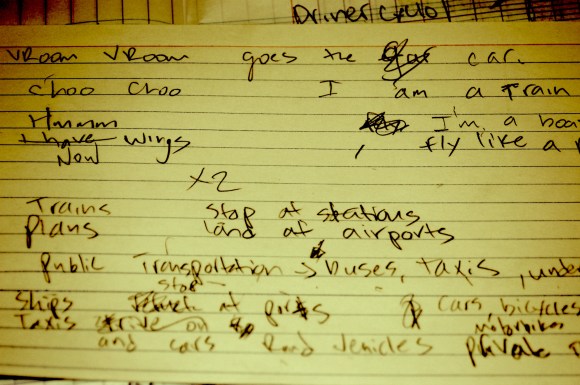 VRoom VRoom goes the car.
choo choo I am a Train
Hmmm I'm a boa
I have wings , fly like a
New
x2
Trains stop at stations
plans land at airports
public Transportation → buses, Taxis, unde
stop
Ships at ports cars bicycles
Taxis drive on motorbikes
and cars Road vehicles private